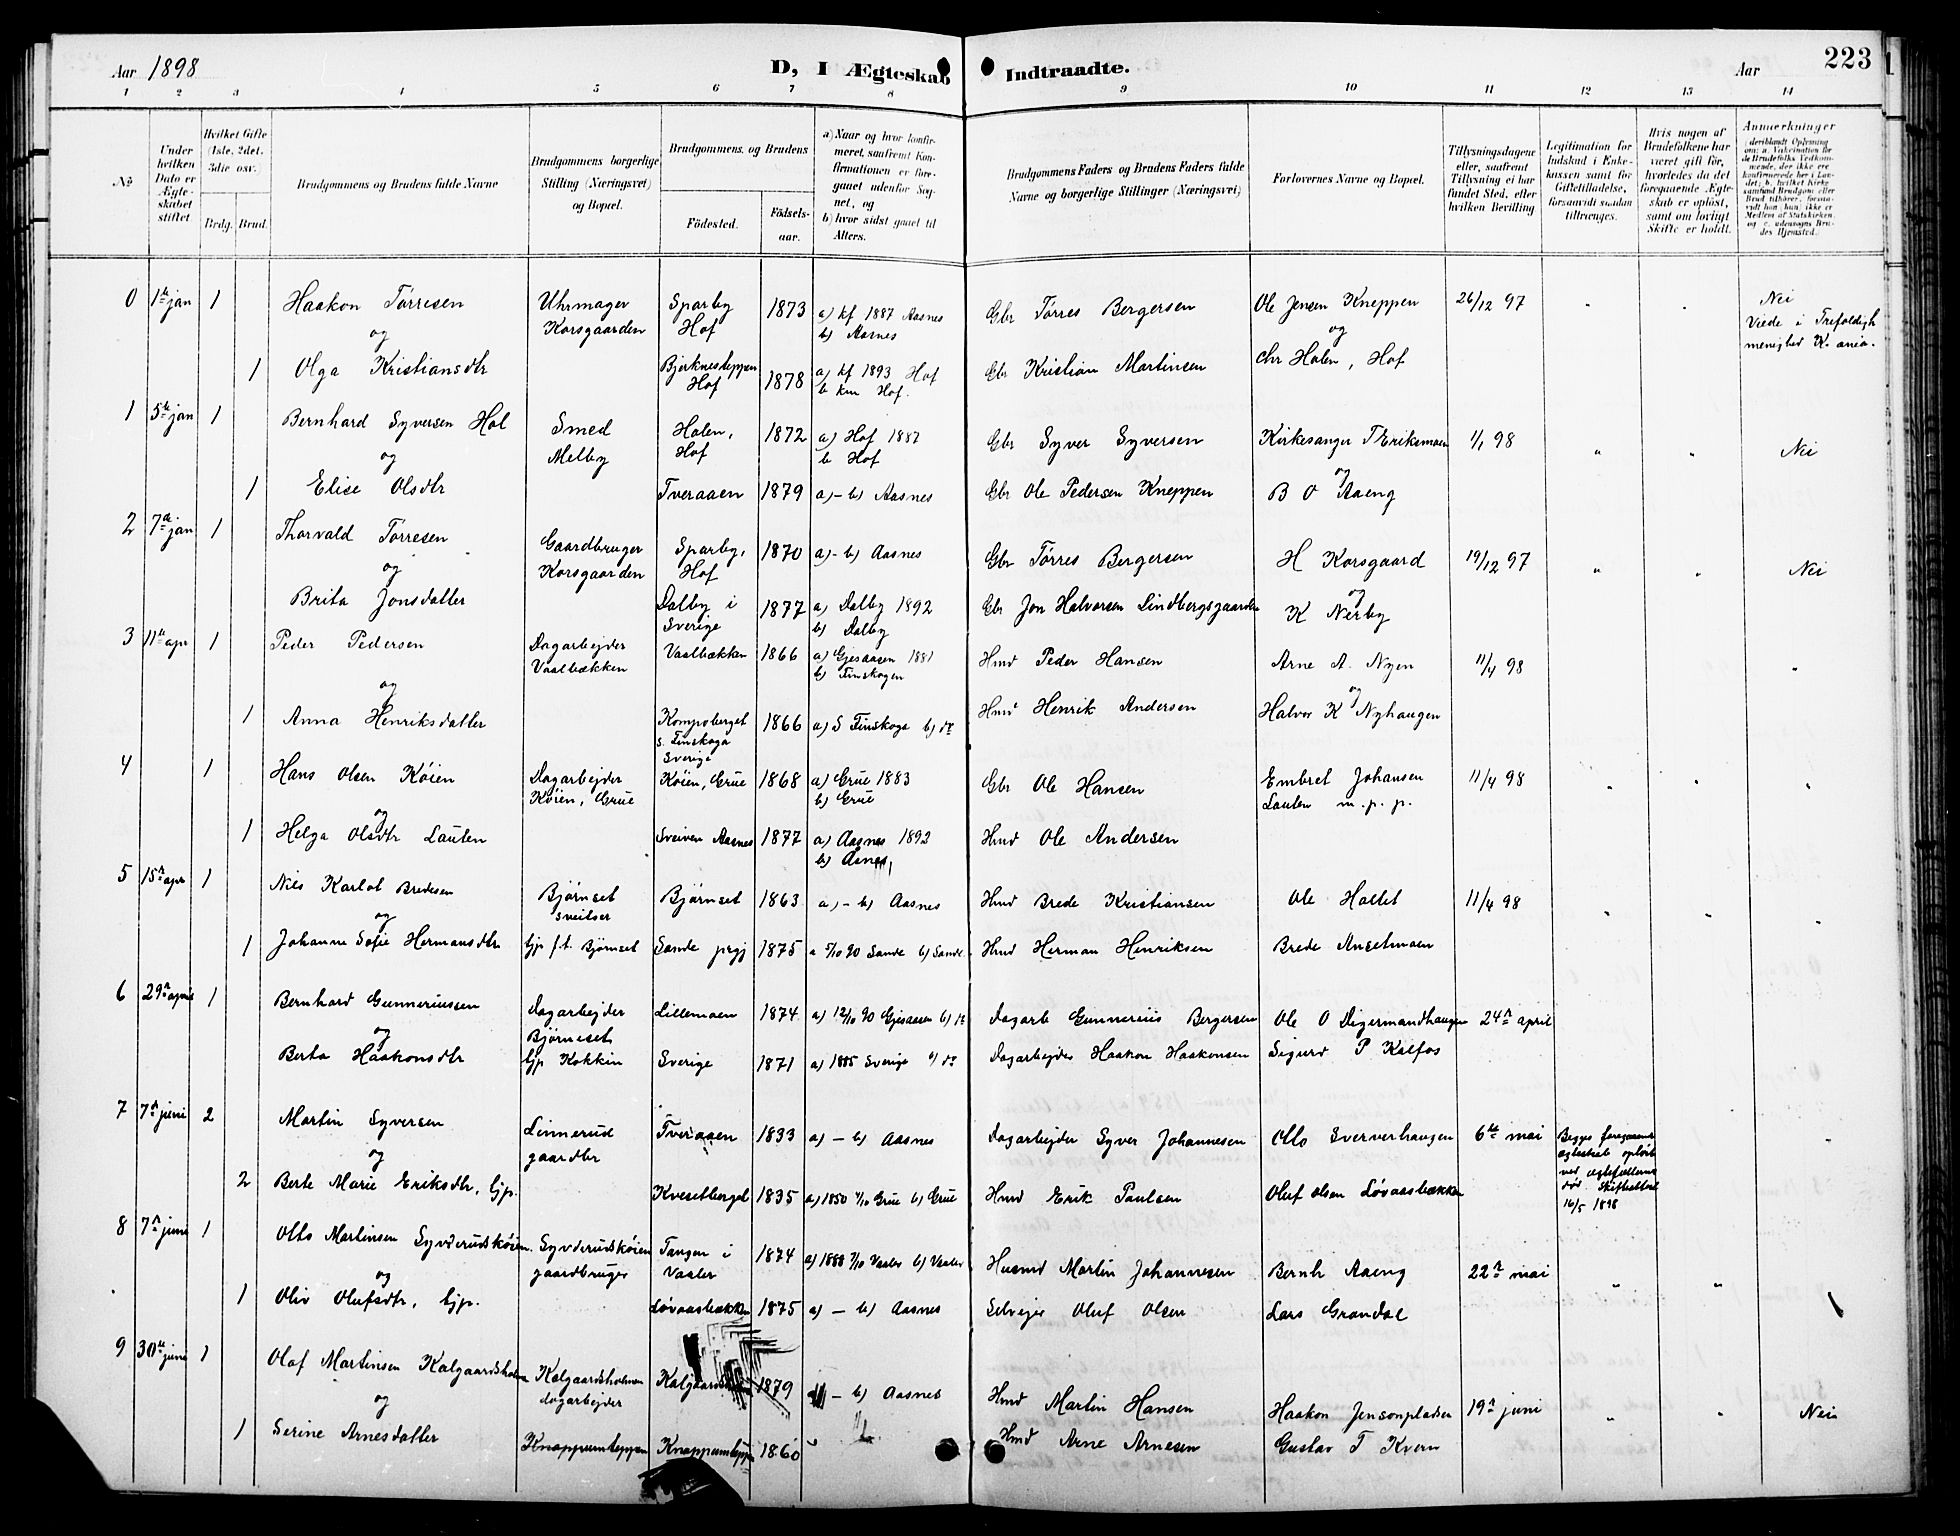 Aar 1898
D, I Ægteskab Indtraadte.
Aar
223
1 2 3 4 5 6 7 8 9 10 11 12 13 14
No
Under hvilken Dato er Ægteskabet stiftet.
Hvilket Gifte (1ste, 2det, 3die osv.
Brdg. Brud.
Brudgommens og Brudens fulde Navne
Brudgommens borgerlige Stilling (Næringsvei) og Bopæl.
Brudgommens og Brudens
Fødested.
Fødselsaar.
a) Naar og hvor konfirmeret, saafremt Konfirmationen er foregaaet udenfor Sognet, og
b) hvor sidst gaaet til Alters.
Brudgommens Faders og Brudens Faders fulde Navne og borgerlige Stillinger (Næringsvei)
Forlovernes Navne og Bopæl.
Tillysningsdagene eller, saafremt Tillysning ei har fundet Sted, efter hvilken Bevilling
Legitimation for Indskud i Enkekassen samt for Giftetilladelse, forsaavidt saadan tiltrænges.
Hvis nogen af Brudefolkene har været gift før, hvorledes da det foregaaende Ægteskab er opløst, samt om lovligt Skifte er holdt.
Anmerkninger (deriblandt Oplysning om: a. Vakcination for de Brudefolks Vedkommende, der ikke ere konfirmerede her i Landet; b. hvilket Kirkesamfund Brudgom eller Brud tilhører, forsaavidt han (hun) ikke er Medlem af Statskirken, og c. udensogns Brudes Hjemsted.
0 1te jan 1 Haakon Tørresen Uhrmager Korsgaarden Sparby Hof 1873 a) kf 1887 Aasnes b) Aasnes Gbr Tørres Bergersen Ole Jensen Kneppen 26/12 97 " " Nei Viede i Trefoldigh menighed K.ania.
og og
1 Olga Kristiansdtr Bjerknesteppen Hof 1878 a) kf 1893 Hof b Hof. Gbr Kristian Martinsen Chr Halen, Hof
1 5te jan 1 Bernhard Syversen Hol Smed Melby Halen, Hof 1872 a) Hof 1887 b Hof Gbr Syver Syversen Kirkesanger T Eriksmoen 1/1 98 " " Nei
og og
1 Elise Olsdtr Tveraaen 1879 a) - b) Aasnes Gbr Ole Pedersen Kneppen B O Aaeng
2 7de jan 1 Thorvald Tørresen Gaardbruger Korsgaarden Sparby, Hof 1870 a) - b) Aasnes Gbr Tørres Bergersen H Korsgaard 19/12 97 " " Nei
og og
Brita Jonsdatter Dalby i Sverige 1877 a) Dalby 1892 b) Dalby Gbr Jon Halvorsen Lindbergsgaarden K Nerby
3 11te apr 1 Peder Pedersen Dagarbejder Vaalbækken Vaalbækken 1866 a) Gjesaasen 1881 b) Finskogen Hmd Peder Hansen Arne A. Nyen 11/4 98 "
og og
1 Anna Henriksdatter Kompoberget s. Finskoga Sverige 1866 a) S Finskoga b) do Hmd Henrik Andersen Halvor K Nyhaugen
4 1 Hans Olsen Køien Dagarbejder Køien, Grue Køien, Grue 1868 a) Grue 1883 b) Grue Gbr Ole Hansen Embret Johansen Lauten m.p.p. 11/4 98 " " "
og
1 Helga Olsdtr Lauten Sveiven Aasnes 1877 a) Aasnes 1892 b) Asnes, Hmd Ole Andersen
5 15de apr 1 Nils Karlot Bredesen Bjørnset sveitser Bjørnset 1863 a) - b) Aasnes Hmd Brede Kristiansen Ole Hollet 11/4 98 " " "
og
1 Johanne Sofie Hermansdtr tjp f.t. Bjørnset Sande prgj 1875 a 5/10 90 Sande b) Sande Hmd Herman Henriksen Brede Anselmoen
6 29de april 1 Bernhard Gunneriussen Dagarbejder Bjørneset Lillemoen 1874 a) 12/10 90 Gjesaasen b) do Dagarb Gunnerius Bergersen Ole O Digermandhaugen 24de april
og
Berta Haakonsdtr tjp Kokkin Sverige 1871 a) 1885 Sverige b) do Dagarbejder Haakon Haakensen Sigurd P Kalfos
7 7de juni 2 Martin Syversen Linnerud gaardbr Tveraaen 1833 a) - b) Aasnes Dagarbejder Syver Johannesen Otto Sververhaugen 6te mai Begges foregaaende ægteskab opløst ved ægtefællernes død. Skifteattest 16/5 1898
og
2 Berte Marie Eriksdtr, tjp. Kvesetberget 1835 a) 1850 1/10 Grue b) Grue Hmd Erik Paulsen Oluf Olsen Løvaasbækken
8 7de juni 1 Otto Martinsen Syvderudskøien Syvderudskøien gaardbruger Tangen i Vaaler 1874 a) 1888 7/10 Vaaler b) Vaaler Husmd Martin Johannesen Bernh Aaeng 22de mai " "
og
1 Oliv Olufsdtr, tjp. Løvaasbækken 1875 a) - b) Aasnes Selvejer Oluf Olsen Lars Grandal
9 30te juni 1 Olaf Martinsen Kalgaardsholmen Kalgaardsholmen dagarbejder 1879 - b) Aasnes Hmd Martin Hansen Haakon Jensonpladsen 19de juni " " Nei
og
1 Serine Arnesdatter Knappumteppen Knappumteppen 1860 Hmd Arne Arnesen Gustav T Kvern